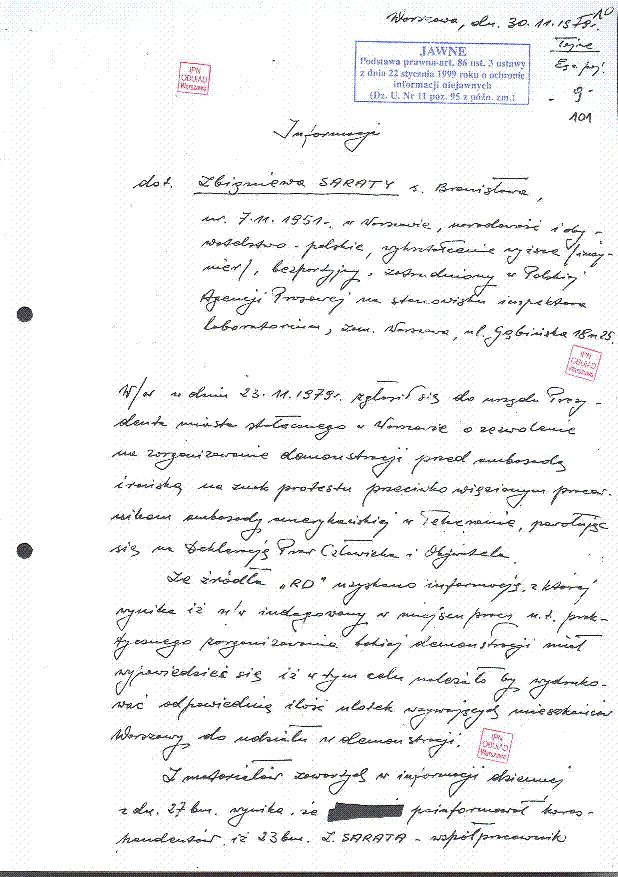 10
Warszawa, dn. 30.11.1979r.
Tajne
Egz. poj.
JAWNE
Podstawa prawna-art. 86 ust. 3 ustawy
z dnia 22 stycznia 1999 roku o ochronie
informacji niejawnych
(Dz. U. Nr 11 poz. 95 z późn. zm.)
IPN
OBUiAD
Warszawa
- 9 -
101
Informacja
dot. Zbigniewa SARATY s. Bronisława,
ur. 7.11.1951r. w Warszawie, narodowość i oby-
watelstwo - polskie, wykształcenie wyższe /inży-
nier/, bezpartyjny, zatrudniony w Polskiej
Agencji Prasowej na stanowisku inspektora
laboratorium, zam. Warszawa, ul. Gąbińska 18 m 25.
IPN
OBUiAD
Warszawa
W/w w dniu 23.11.1979r. zgłosił się do urzędu Prezy-
denta miasta stołecznego w Warszawie o zezwolenie
na zorganizowanie demonstracji przed ambasadą
irańską na znak protestu przeciwko więzionym pracow-
nikom ambasady amerykańskiej w Teheranie, powołując
się na Deklarację Praw Człowieka i Obywatela.
Ze źródła „RD” uzyskano informację, z której
wynika iż w/w indagowany w miejscu pracy n.t. prak-
tycznego zorganizowania takiej demonstracji miał
wypowiedzieć się iż w tym celu należało by wydruko-
wać odpowiednią ilość ulotek wzywających mieszkańców
Warszawy do udziału w demonstracji.
IPN
OBUiAD
Warszawa
Z materiałów zawartych w informacji dziennej
z dn. 27 bm. wynika, że poinformował kores-
pondentów, iż 23 bm. Z. SARATA - współpracownik